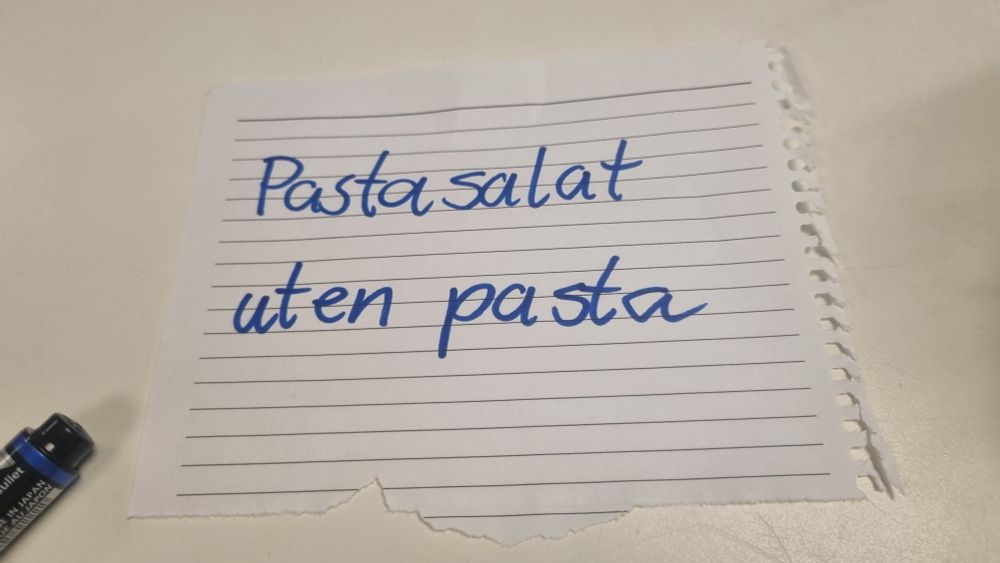 Pastasalat
uten pasta
ullet
IN JAPAN